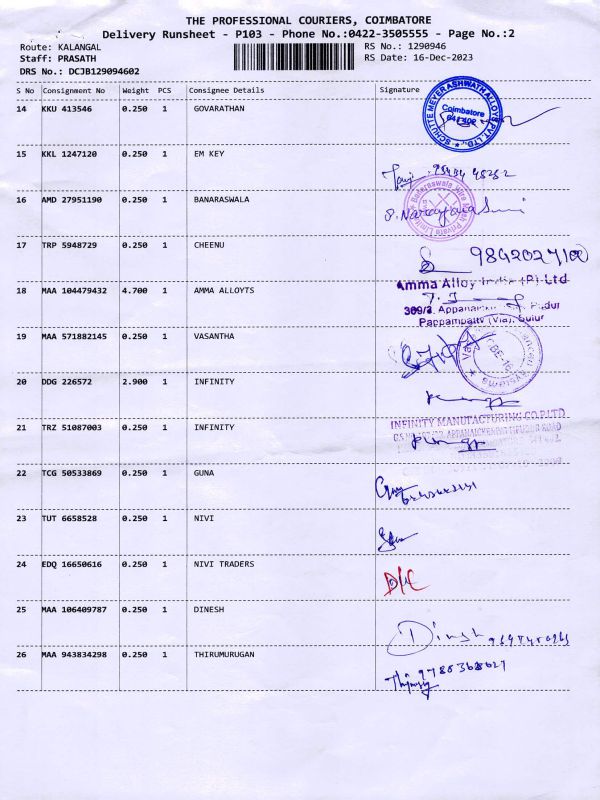 THE PROFESSIONAL COURIERS, COIMBATORE
Delivery Runsheet - P103 - Phone No.:0422-3505555 - Page No.:2
Route: KALANGAL RS No.: 1290946
Staff: PRASATH RS Date: 16-Dec-2023
DRS No.: DCJB129094602
S No Consignment No Weight PCS Consignee Details Signature
14 KKU 413546 0.250 1 GOVARATHAN
SCHUTTE MEYER ASHWATH ALLOYS PVT. LTD.
Coimbatore
641402
15 KKL 1247120 0.250 1 EM KEY
16 AMD 27951190 0.250 1 BANARASWALA
17 TRP 5948729 0.250 1 CHEENU
18 MAA 104479432 4.700 1 AMMA ALLOYTS
Amma Alloy India (P) Ltd
Pappampatty (Via), Sulur
19 MAA 571882145 0.250 1 VASANTHA
20 DDG 226572 2.900 1 INFINITY
21 TRZ 51087003 0.250 1 INFINITY
INFINITY MANUFACTURING CO.P.LTD
22 TCG 50533869 0.250 1 GUNA
23 TUT 6658528 0.250 1 NIVI
24 EDQ 16650616 0.250 1 NIVI TRADERS D/C
25 MAA 106409787 0.250 1 DINESH
26 MAA 943834298 0.250 1 THIRUMURUGAN